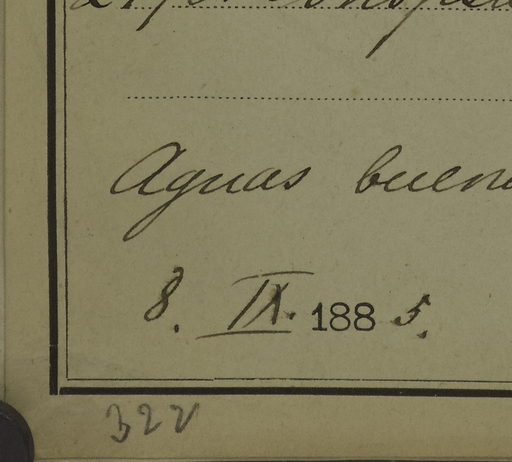 Aguas buen
8. IX. 1885.
322